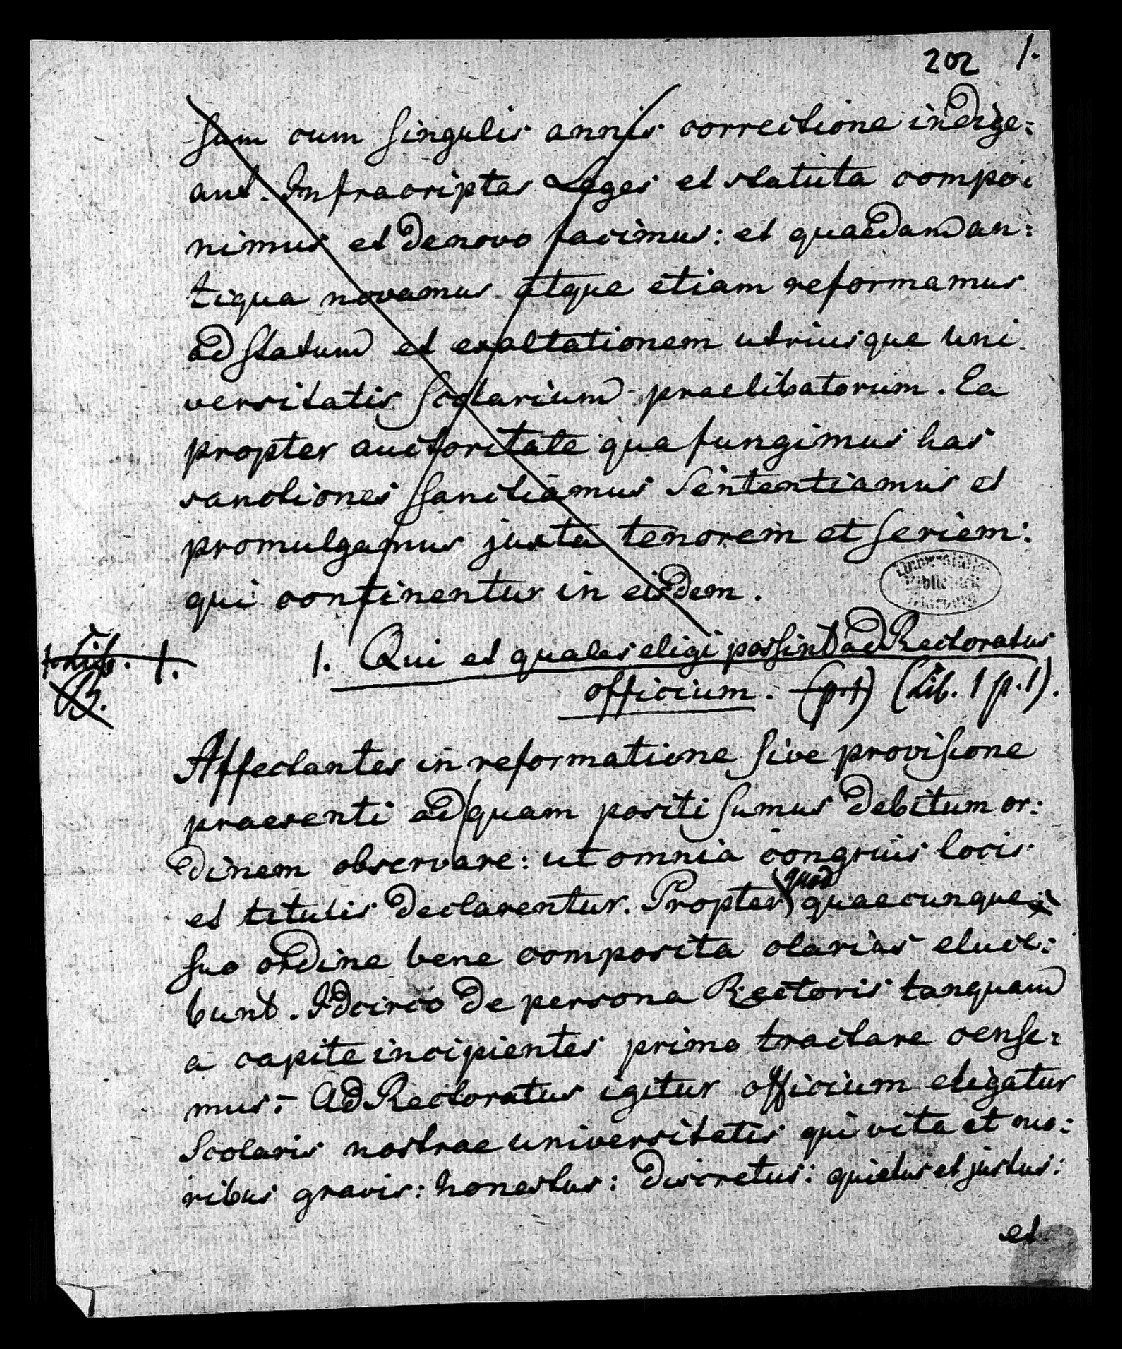 202 1.
sum cum singulis annis correctione indige:
ant. Infrascriptas Leges et statuta compo:
nimus et denovo facimus: et quaedam an:
tiqua novamus atque etiam reformamus
ad statum et exaltationem utriusque uni
versitatis Scolarium praelibatorum. Ea
propter auctoritate qua fungimus has
sanctiones sanctiamus sententiamus et
promulgamus juxta tenorem et seriem:
qui continentur in eisdem.
Lib. 1.
1. Qui et quales eligi possint ad Rectoratus
officium. (p.1) (Lib. 1 p.1).
Affectantes in reformatione sive provisione
praesenti ad quam positi sumus debitum or:
dinem observare: ut omnia congruis locis
et titulis declarentur. Propter quod quaecunque
suo ordine bene composita clarius eluce:
bunt. Idcirco de persona Rectoris tanquam
a capite incipientes primo tractare cense:
mus: Ad Rectoratus igitur officium eligatur
Scolaris nostrae universitatis qui vita et mo:
ribus gravis: honestus: discretus: quietus et justus:
et